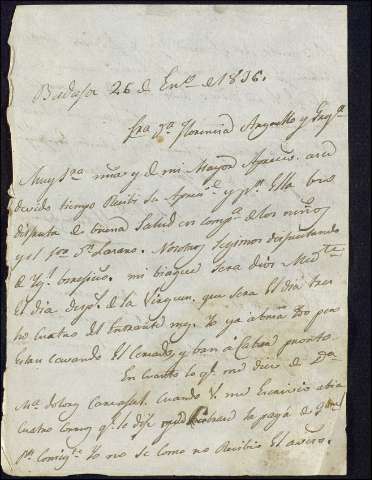 Badajoz 26 de Enº de 1836.
Sra Dª Florencia y
Muy Sra mia y de mi Mayor Aprecio. a su
devido tiempo Recibi su Apreciª y pr Ella beo
disfruta de buena Salud en compª de los niños
y el Sor Dn Lazaro. Nosotros segimos disfrutando
de Igl beneficio. mi biaque sera dios Medte
el dia despˢ de la Virguen, que sera El dia tres
ho cuatro del Entrante mes. Yo ya abria Ido pero
Estan cavando El Cercado, y ban a Cabar pronto.
En cuanto lo qe me dice de Dª
Mª dolores Carvajal. Cuando V. me Escrivio abia
Cuatro correos qe le dije la paga de
pr Consigte Yo no se como no Recibio El aviso.